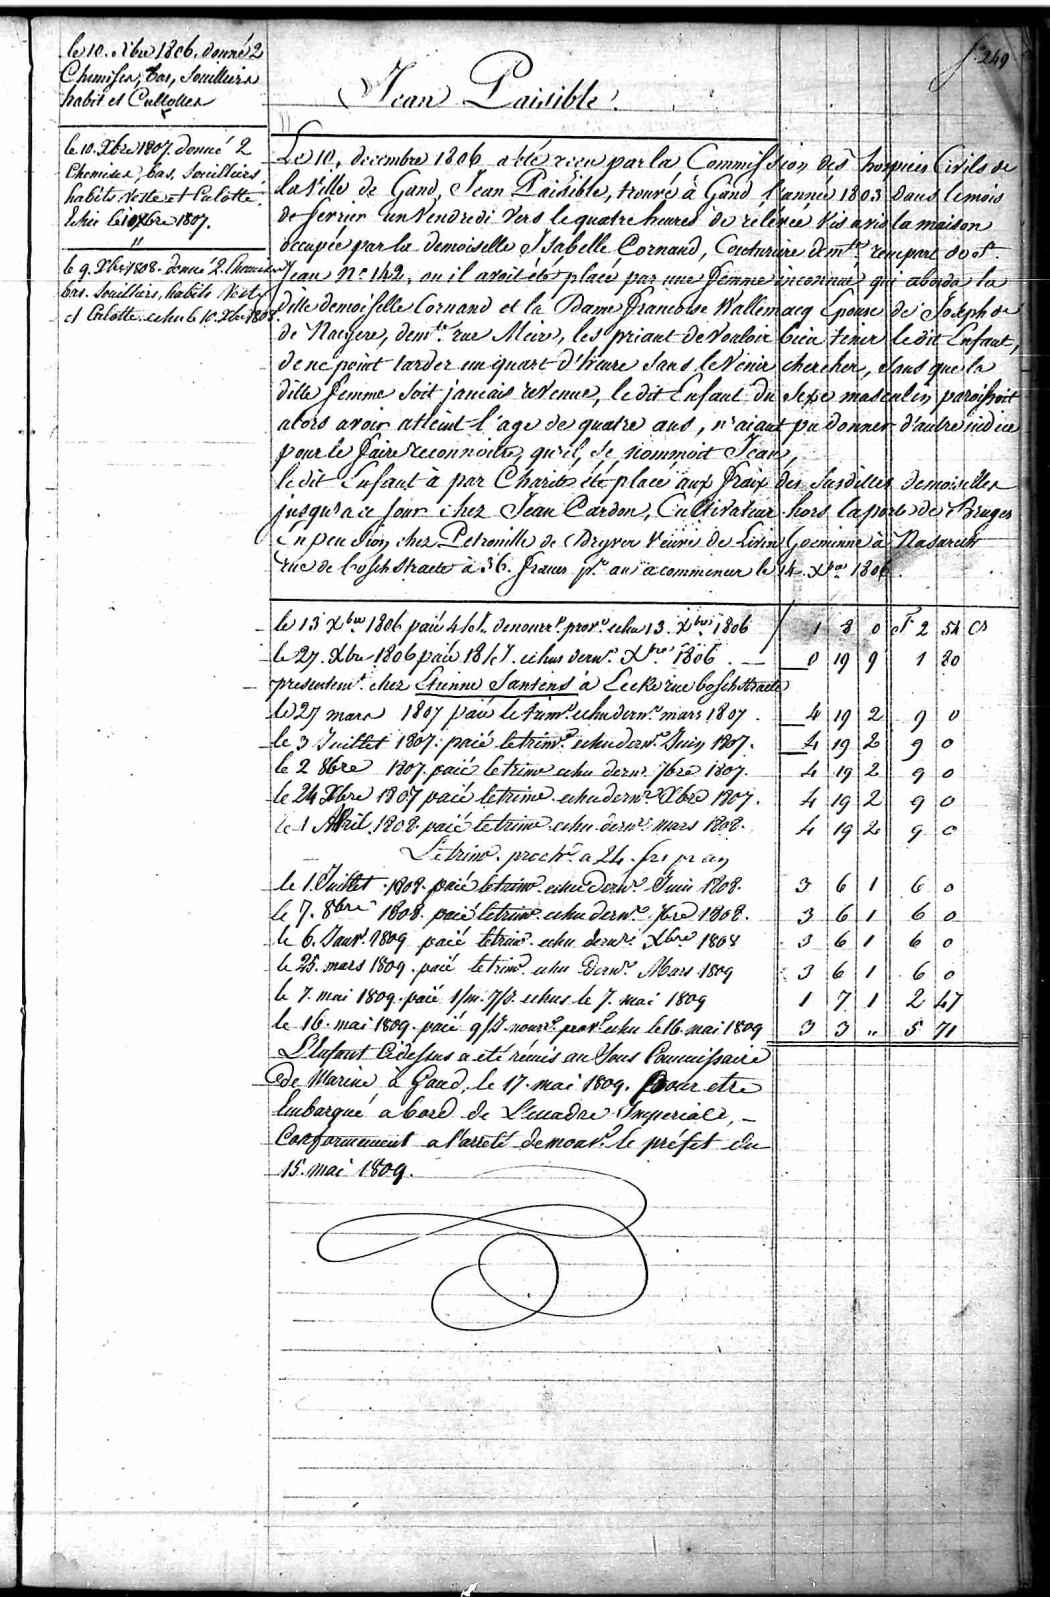 f. 249
le 10. Xbre 1806. donné 2
Chemises, bas, Souilliers
habit et Cullottes
le 10. Xbre 1807. donné 2
Chemises, bas, Souilliers
habits veste et Culotte.
Echu le 10 Xbre 1807.
"
le 9. Xbre 1808. donné 2. Chemises
bas. Souilliers, habits Veste
et Culotte. echu le 10. Xbre 1808.
Jean Paisible.
Le 10, decembre 1806 a été recu par la Commission des hospices Civils de
la Ville de Gand, Jean Paisible, trouvé à Gand l'année 1803 dans le mois
de fevrier un Vendredi vers le quatre heures de relevée vis a vis la maison
occupée par la demoiselle Isabelle Cornand, Couturiere demte. rempart de St.
Jean No. 142, ou il avoit été placé par une femme inconnue qui aborda la
ditte demoiselle Cornand et la Dame francoise Wallemacq Epouse de Joseph de
de Naeyere, demte. rue Meire, les priant de vouloir bien tenir le dit Enfant,
de ne point tarder un quart d'heure sans le venir chercher, sans que la
ditte femme soit jamais revenue, le dit Enfant du Sexe masculin paroissoit
alors avoir atteint l'age de quatre ans, n'aiant pu donner d'autre indice
pour le faire reconnoitre, qu'il, se nommoit Jean,
le dit Enfant à par Charité été placé aux fraix des susdittes demoiselles
jusqu'a ce jour chez Jean Cardon, Cultivateur hors la porte de Bruges
En pension chez Petronille de Dryver veuve de Livin Goeminne à Nasareth
rue de boschstraete à 36. francs pr. an à commencer le 14 Xbre 1806.
le 13 Xbre 1806 paié 4 Sct. de nourre. provre. echu 13. Xbre 1806 1 8 0 f 2 54 cs
le 27. Xbre 1806 paié 18 jrs. echus derne. Xbre 1806. — 0 19 9 1 80
presentemt. chez Etienne Santens à Eecke rue boschstraete
le 27 mars 1807 paié le trime. echu derne. mars 1807. 4 19 2 9 0
le 3 Juillet 1807. paié le trime. echu derne. Juin 1807. 4 19 2 9 0
le 2 8bre 1807. paié le trime echu derne 7bre 1807. 4 19 2 9 0
le 24 Xbre 1807 paié le trime. echu derne. Xbre 1807. 4 19 2 9 0
le 1 Avril 1808. paié le trime. echu derne. mars 1808. 4 19 2 9 0
Le trime. proche. a 24. frs pr an
le 1. Juillet. 1808. paié le trime. echu derne. Juin 1808. 3 6 1 6 0
le 7. 8bre 1808. paié le trime. echu derne. 7bre 1808. 3 6 1 6 0
le 6. Janvr. 1809 paié le trime. echu derne. Xbre 1808 3 6 1 6 0
le 25. mars 1809. paié le trime. echu derne. Mars 1809 3 6 1 6 0
le 7. mai 1809. paié 1/m. 7/J. echus le 7. mai 1809 1 7 1 2 47
le 16. mai 1809. paié 9/J. nourre. provre. echu le 16. mai 1809 3 3 " 5 71
L'Enfant Cidessus a eté rémis au Sous Commissaire
de Marine à Gand, le 17. mai 1809. Pour etre
Embarqué a bord de L'escadre Imperiale, –
Conformement a l'arreté de monsr. le préfet du
15. mai 1809.